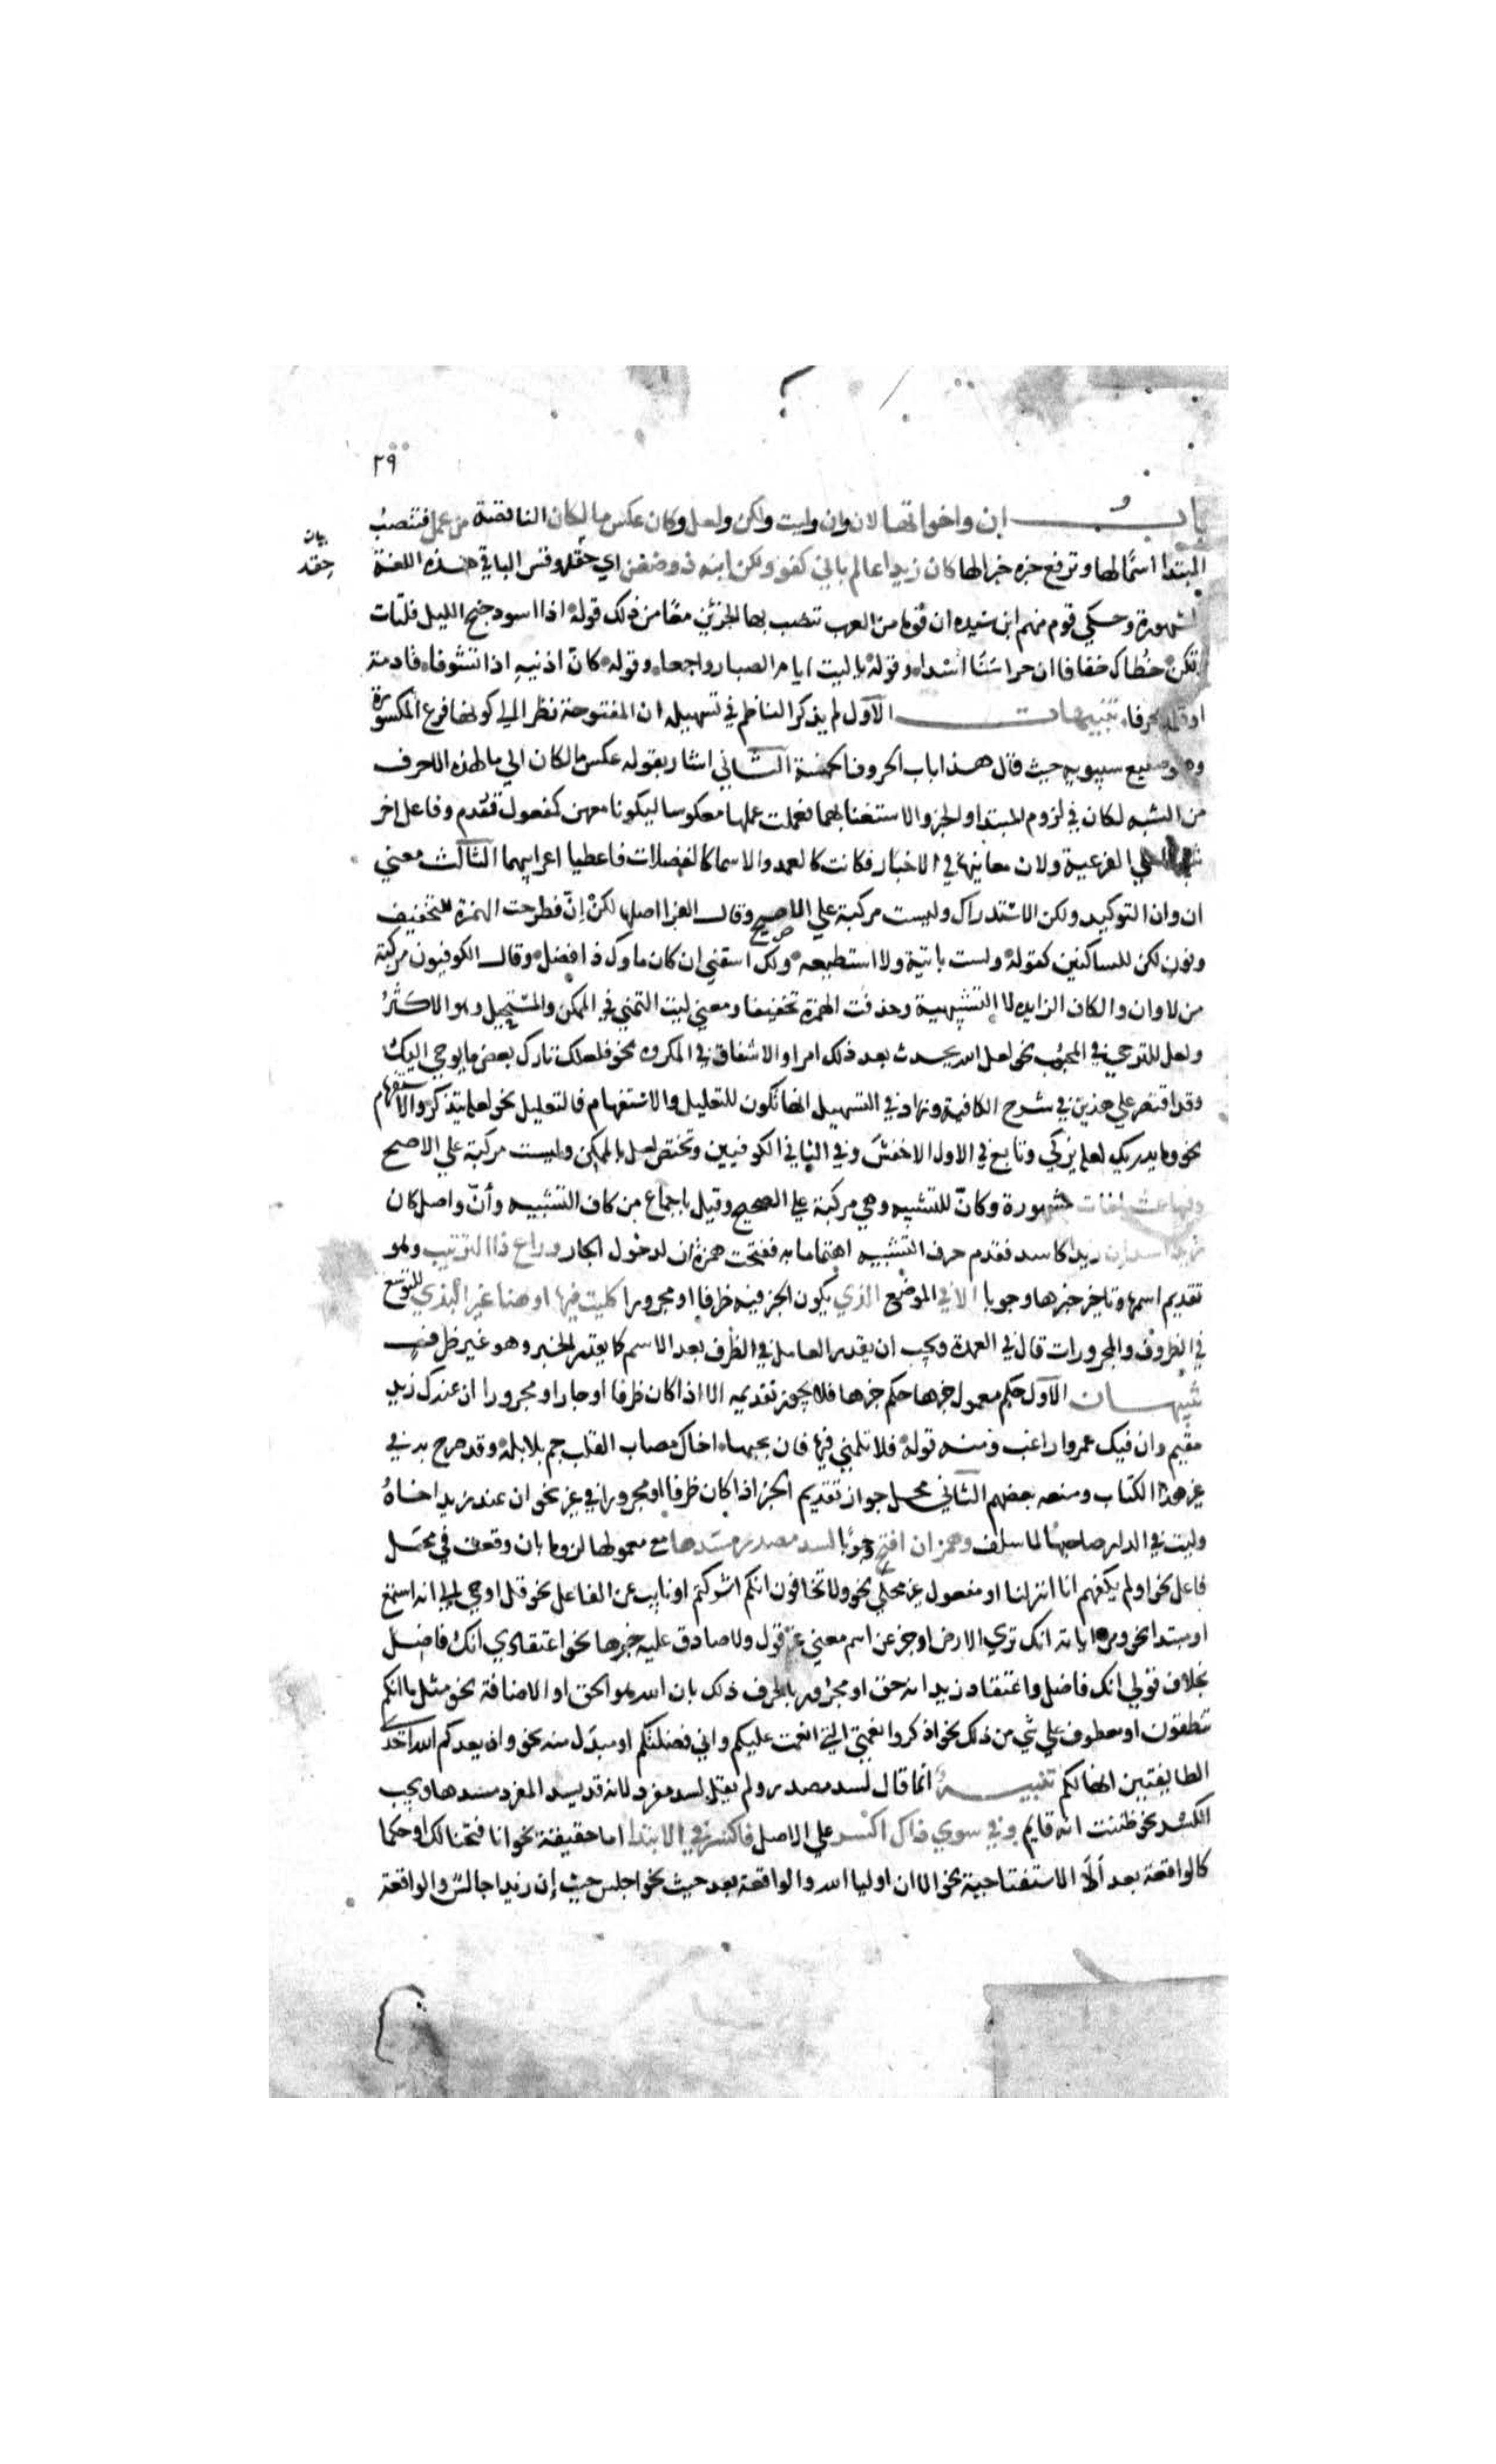 ٢٩
باب إن واخواتها لان وان وليت ولكن ولعل وكان عكس ما لكان الناقصة من عمل فتنصب
المبتدا اسمًا لها وترفع خبره خبرا لها كان زيدا عالم باني كفؤ ولكن ابنه ذو ضغن اي حقد وقس الباقي هذه اللغة
بيان
حقد
المشهورة وحكي قوم منهم ابن سيده ان قوما من العرب تنصب بها الجزئين معًا من ذلك قوله اذا اسود جنح الليل فلتات
ولتكن خطاك خفافا ان حراسنا اسدا وقوله يا ليت ايام الصبا رواجعا وقوله كانّ اذنيه اذا تشوفا قادمة
او قلما محرفا تنبيهات الاول لم يذكر الناظم في تسهيله ان المفتوحة نظرا الي كونها فرع المكسورة
وهو صنيع سيبويه حيث قال هذا باب الحروف الخمسة الثاني اشار بقوله عكس ما لكان الي ما لهذه الاحرف
من الشبه لكان في لزوم المبتدا والخبر والاستغنا بهما فعملت عملها معكوسا ليكونا معهن كمفعول تقدم وفاعل اخر
تنبيها علي الفرعية ولان معانيها في الاخبار فكانت كالعمد والاسما كالفضلات فاعطيا اعرابيهما الثالث معني
ان وان التوكيد ولكن الاستدراك وليست مركبة علي الاصح وقال الفرا اصلها لكنْ اِنّ فطرحت الهمزة للتخفيف
ونون لكن للساكنين كقوله ولست باتيه ولا استطيعه ولاك اسقني ان كان ماوك ذا فضل وقال الكوفيون مركبة
من لا وان والكاف الزايده لا التشبيهية وحذفت الهمزة تخفيفا ومعني ليت التمني في الممكن والمستحيل وهو الاكثر
ولعل للترجي في المحبوب نحو لعل الله يحدث بعد ذلك امرا والاشفاق في المكروه نحو فلعلك تارك بعض ما يوحي اليك
وقد اقتصر علي هذين في شرح الكافية وزاد في التسهيل انها تكون للتعليل والاستفهام فالتعليل نحو لعله يتذكر والاستفهام
نحو وما يدريك لعله يزكي وتابع في الاول الاخفش وفي الثاني الكوفيين وتختص لعل بالممكن وليست مركبة علي الاصح
وفيها عشر لغات مشهورة وكانّ للتشبيه وهي مركبة علي الصحيح وقيل باجماع من كاف التشبيه وأنّ واصل كان
زيدا اسد ان زيدا كاسد فقدم حرف التشبيه اهتماما به ففتحت همزة ان لدخول الجار وراع ذا الترتيب وهو
تقديم اسمها وتاخير خبرها وجوبا الا في الموضع الذي يكون الخبر فيه ظرفا او مجرورا كليت فيها او هنا غير البذي للتوسع
في الظروف والمجرورات قال في العمدة ويجب ان يقدر العامل في الظرف بعد الاسم كما يقدر الخبر وهو غير ظرف
تنبيهان الاول حكم معمول خبرها حكم خبرها فلا يجوز تقديمه الا اذا كان ظرفا او جارا ومجرورا ان عندك زيدا
مقيم وان فيك عمروا راغب ومنه قوله فلا تلحني فيها فان بحبها اخاك مصاب القلب جم بلابله وقد صرح به في
غير هذا الكتاب ومنعه بعضهم الثاني محل جواز تقديم الخبر اذا كان ظرفا او مجرورا في غير نحو ان عند زيد اخاه
وليت في الدار صاحبها لما سلف وهمز ان افتح وجوبا لسد مصدر مسدها مع معمولها لزوما بان وقعت في محل
فاعل نحو اولم يكفهم انا انزلنا او مفعول غير محكي نحو ولا تخافون انكم اشركتم او نايب عن الفاعل نحو قل اوحي الي انه استمع
او مبتدا نحو ومن اياته انك تري الارض او خبر عن اسم معني غير قول ولا صادق عليه خبرها نحو اعتقادي انك فاضل
بخلاف قولي انك فاضل واعتقاد زيد انه حق او مجرور بالحرف ذلك بان الله هو الحق او الاضافة نحو مثل ما انكم
تنطقون او معطوف علي شي من ذلك نحو اذكروا نعمتي التي انعمت عليكم واني فضلتكم او مبدل منه نحو واذ يعدكم الله احدي
الطايفتين انها لكم تنبيه انما قال لسد مصدر ولم يقل لسد مفرد لانه قد يسد المفرد مسدها ويجب
الكسر نحو ظننت انه قايم وفي سوي ذاك اكسر علي الاصل فاكسر في الابتدا اما حقيقة نحو انا فتحنا لك او حكما
كالواقعة بعد ألا الاستفتاحية نحو الا ان اوليا الله والواقعة بعد حيث نحو اجلس حيث إن زيدا جالس والواقعة